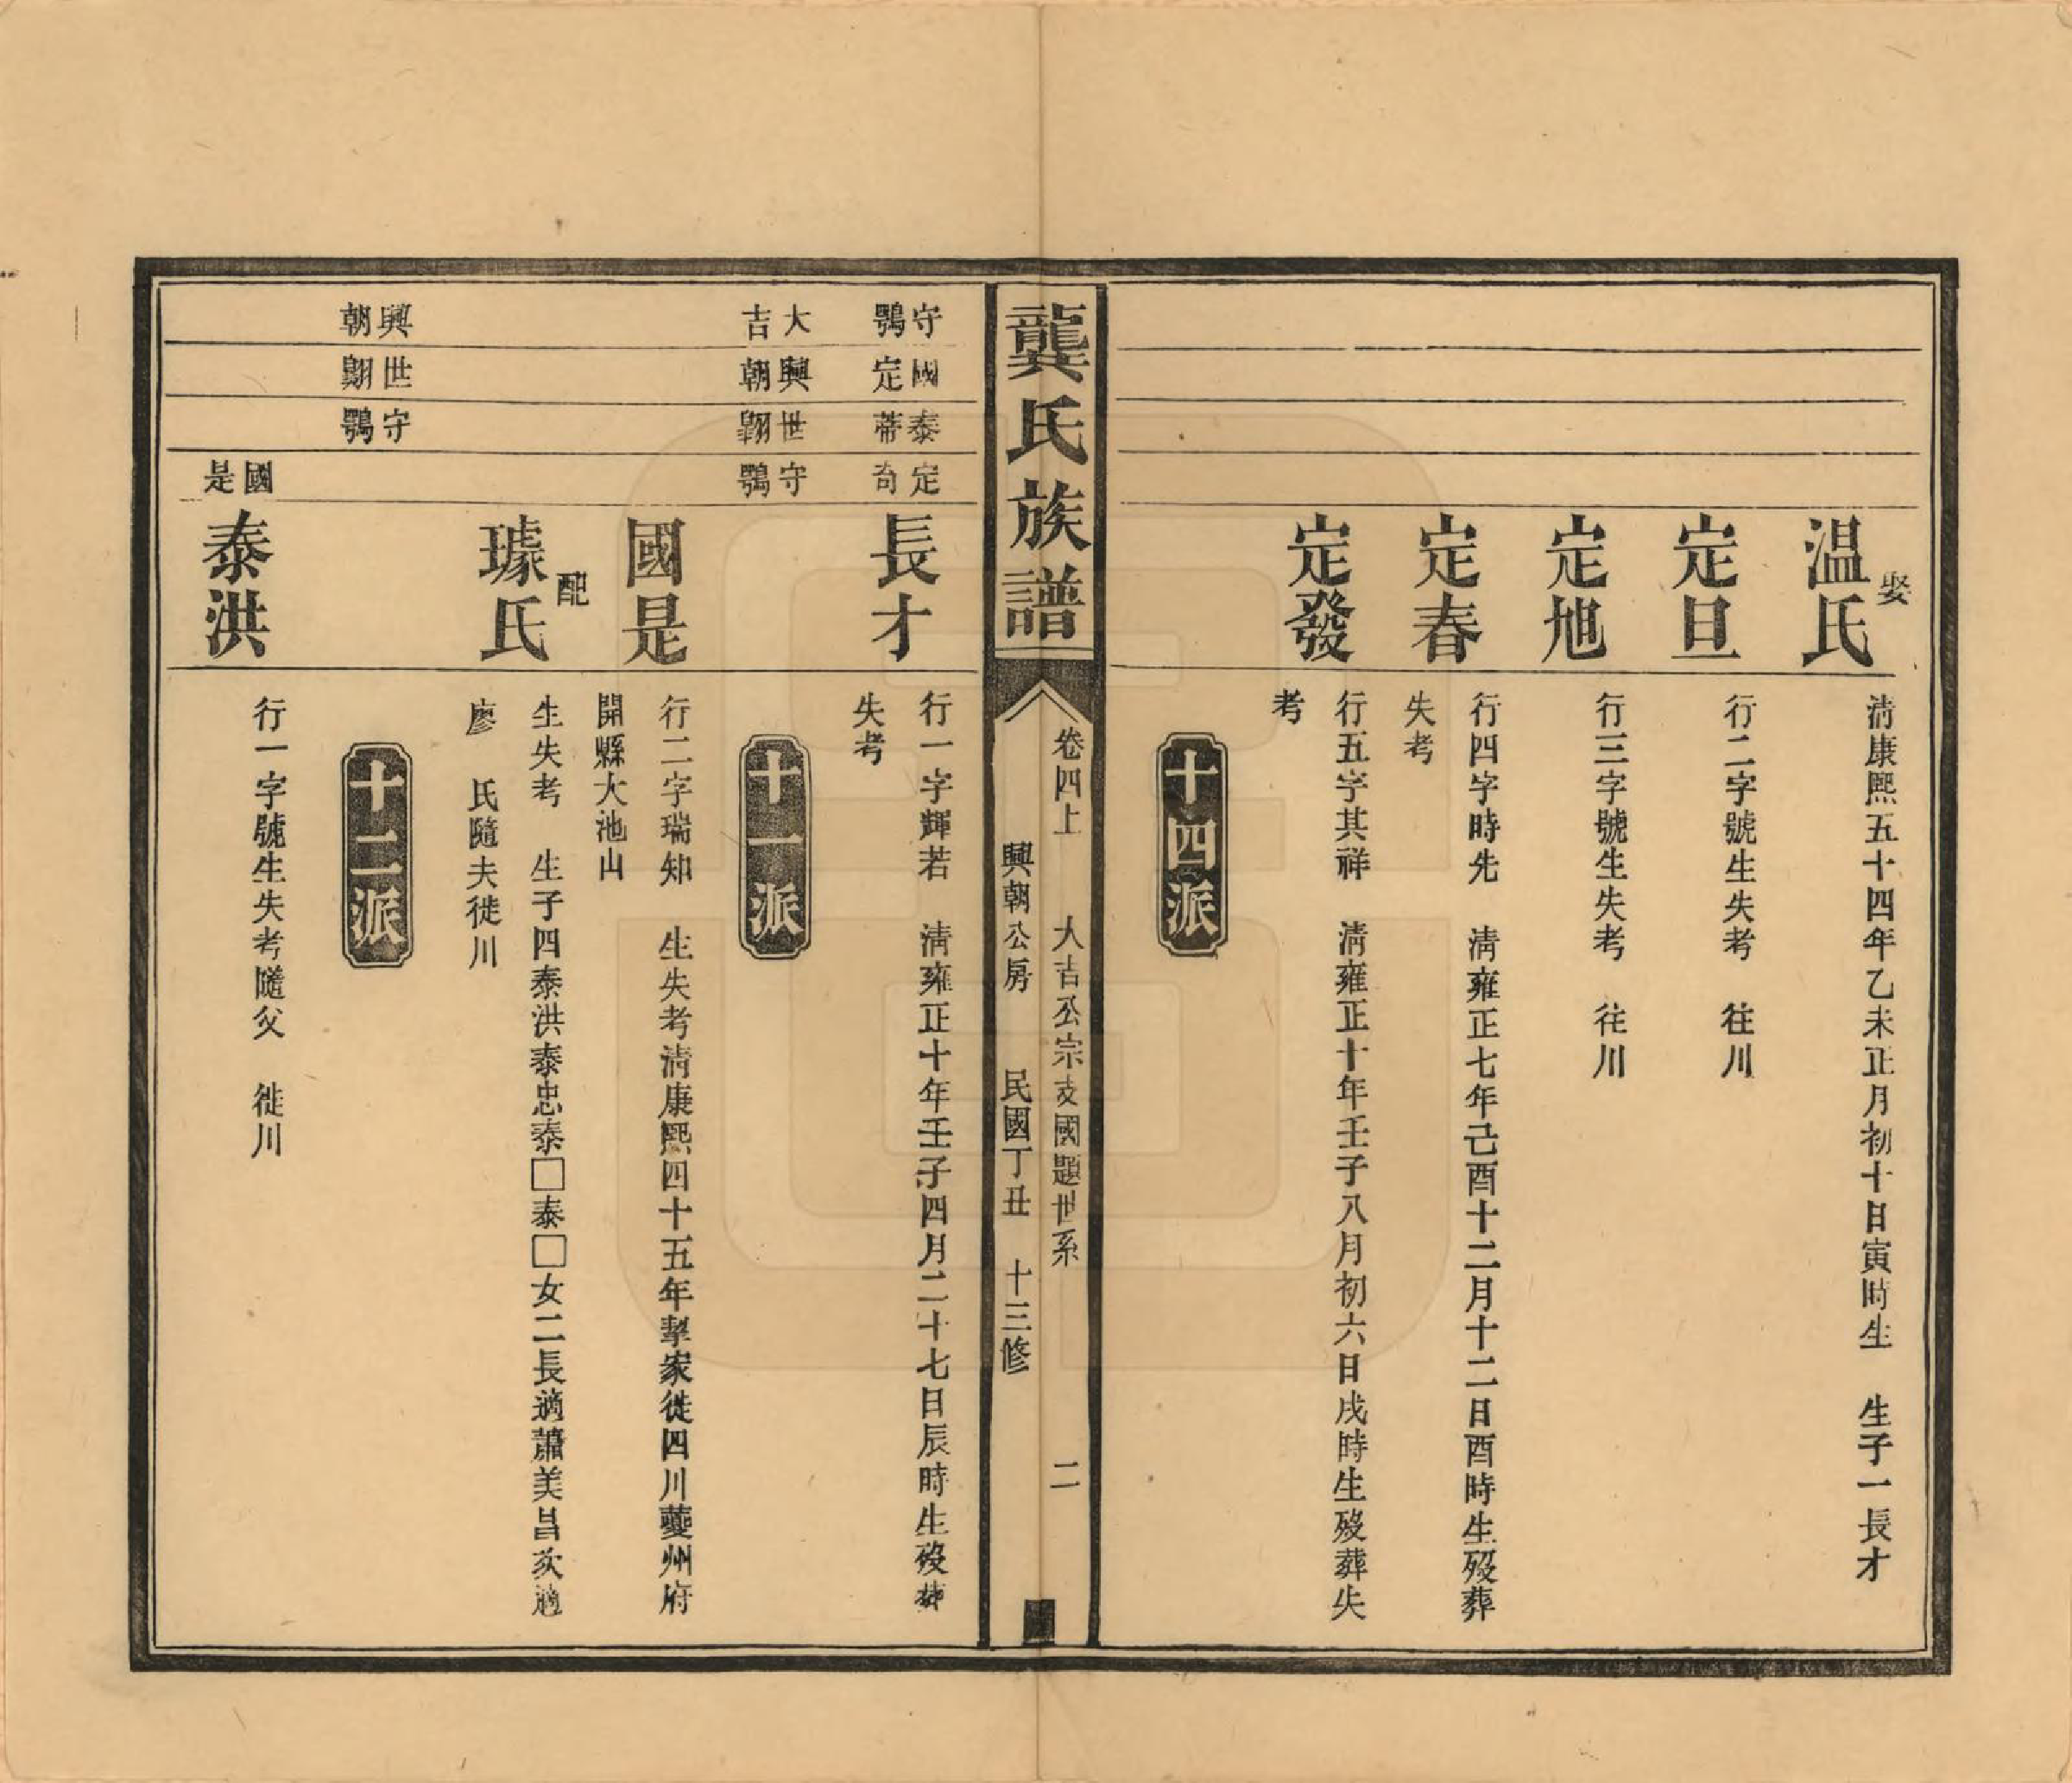 娶
温氏
清康熙五十四年乙未正月初十日寅時生　生子一長才
定旦
行二字號生失考　往川
定旭
行三字號生失考　往川
定春
行四字時先　清雍正七年己酉十二月十二日酉時生歿葬
失考
定發
行五字其祥　清雍正十年壬子八月初六日戌時生歿葬失
考
十四派
龔氏族譜
卷四上　大吉公宗支國題世系　二
興朝公房　民國丁丑　十三修
守鶚
國定
泰蒂
定奇
長才
行一字輝若　清雍正十年壬子四月二十七日辰時生歿葬
失考
十一派
大吉
興朝
世翺
守鶚
國是
行二字瑞知　生失考清康熙四十五年挈家徙四川夔州府
開縣大池山
配
璩氏
生失考　生子四泰洪泰忠泰□泰□女二長適蕭美昌次適
廖　氏隨夫徙川
十二派
興朝
世翺
守鶚
國是
泰洪
行一字號生失考隨父　徙川